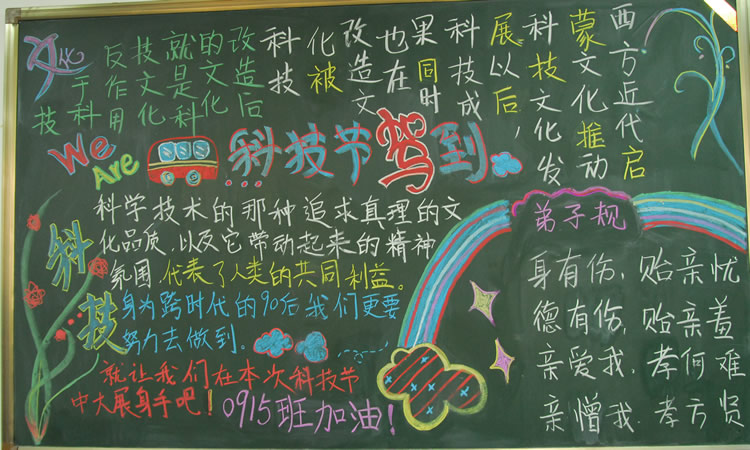 文化
西方近代启
蒙文化推动
科技文化发
展以后，
科技成
果同时
也在
改造文
化被
科技
改造后
的文化
就是科
技文化
反作用
于科
技
We Are
科技节驾到
科技
科学技术的那种追求真理的文
化品质，以及它带动起来的精神
氛围，代表了人类的共同利益。
身为跨时代的90后我们更要
努力去做到。
就让我们在本次科技节
中大展身手吧！
0915班加油！
弟子规
身有伤，贻亲忧
德有伤，贻亲羞
亲爱我，孝何难
亲憎我，孝方贤